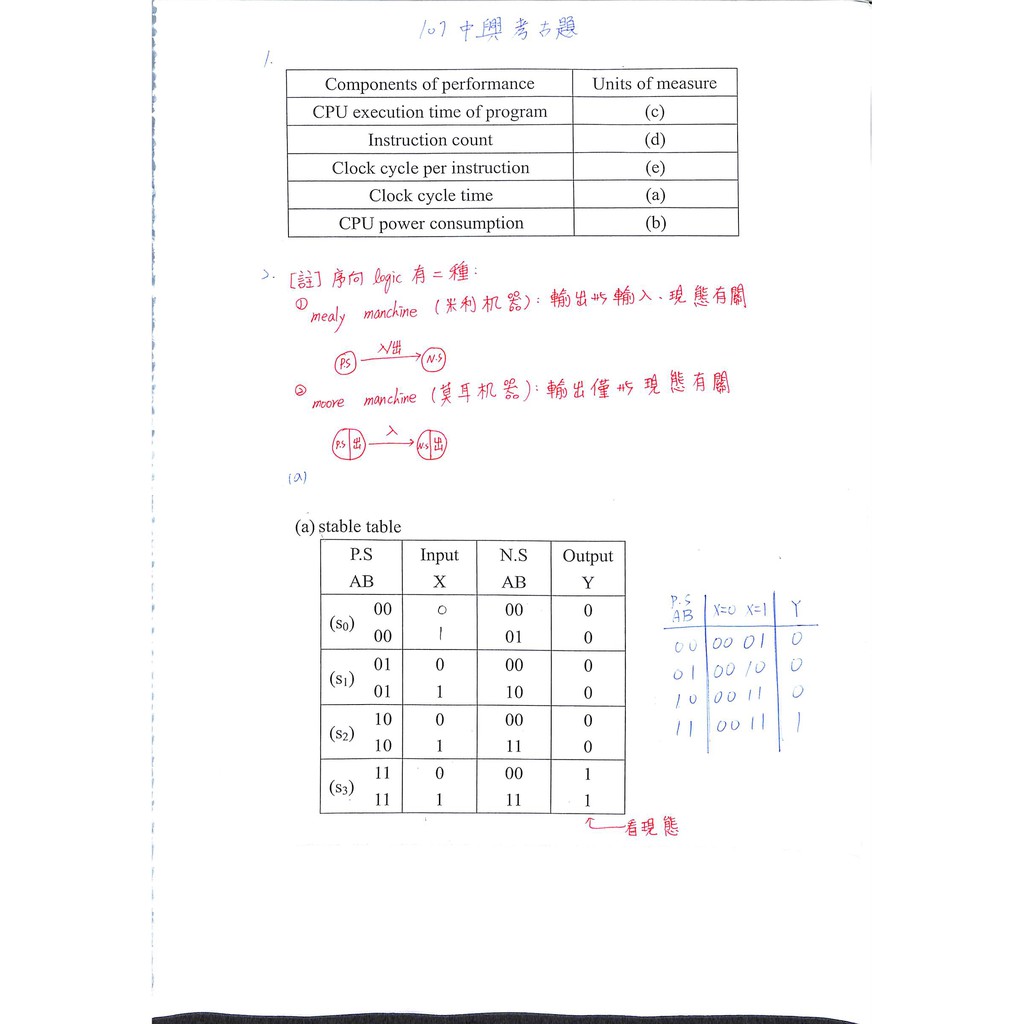 107 中興考古題
1.
Components of performance Units of measure
CPU execution time of program (c)
Instruction count (d)
Clock cycle per instruction (e)
Clock cycle time (a)
CPU power consumption (b)
2. [註] 序向 logic 有二種:
① mealy manchine (米利机器): 輸出与輸入、現態有關
入/出
P.S N.S
② moore manchine (莫耳机器): 輸出僅与現態有關
入
P.S 出 N.S 出
(a)
(a) stable table
P.S Input N.S Output
AB X AB Y
(s0) 00 0 00 0
00 1 01 0
(s1) 01 0 00 0
01 1 10 0
(s2) 10 0 00 0
10 1 11 0
(s3) 11 0 00 1
11 1 11 1
看現態
P.S
AB X=0 X=1 Y
00 00 01 0
01 00 10 0
10 00 11 0
11 00 11 1